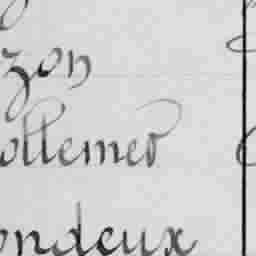 zon
ollemer
ondeux